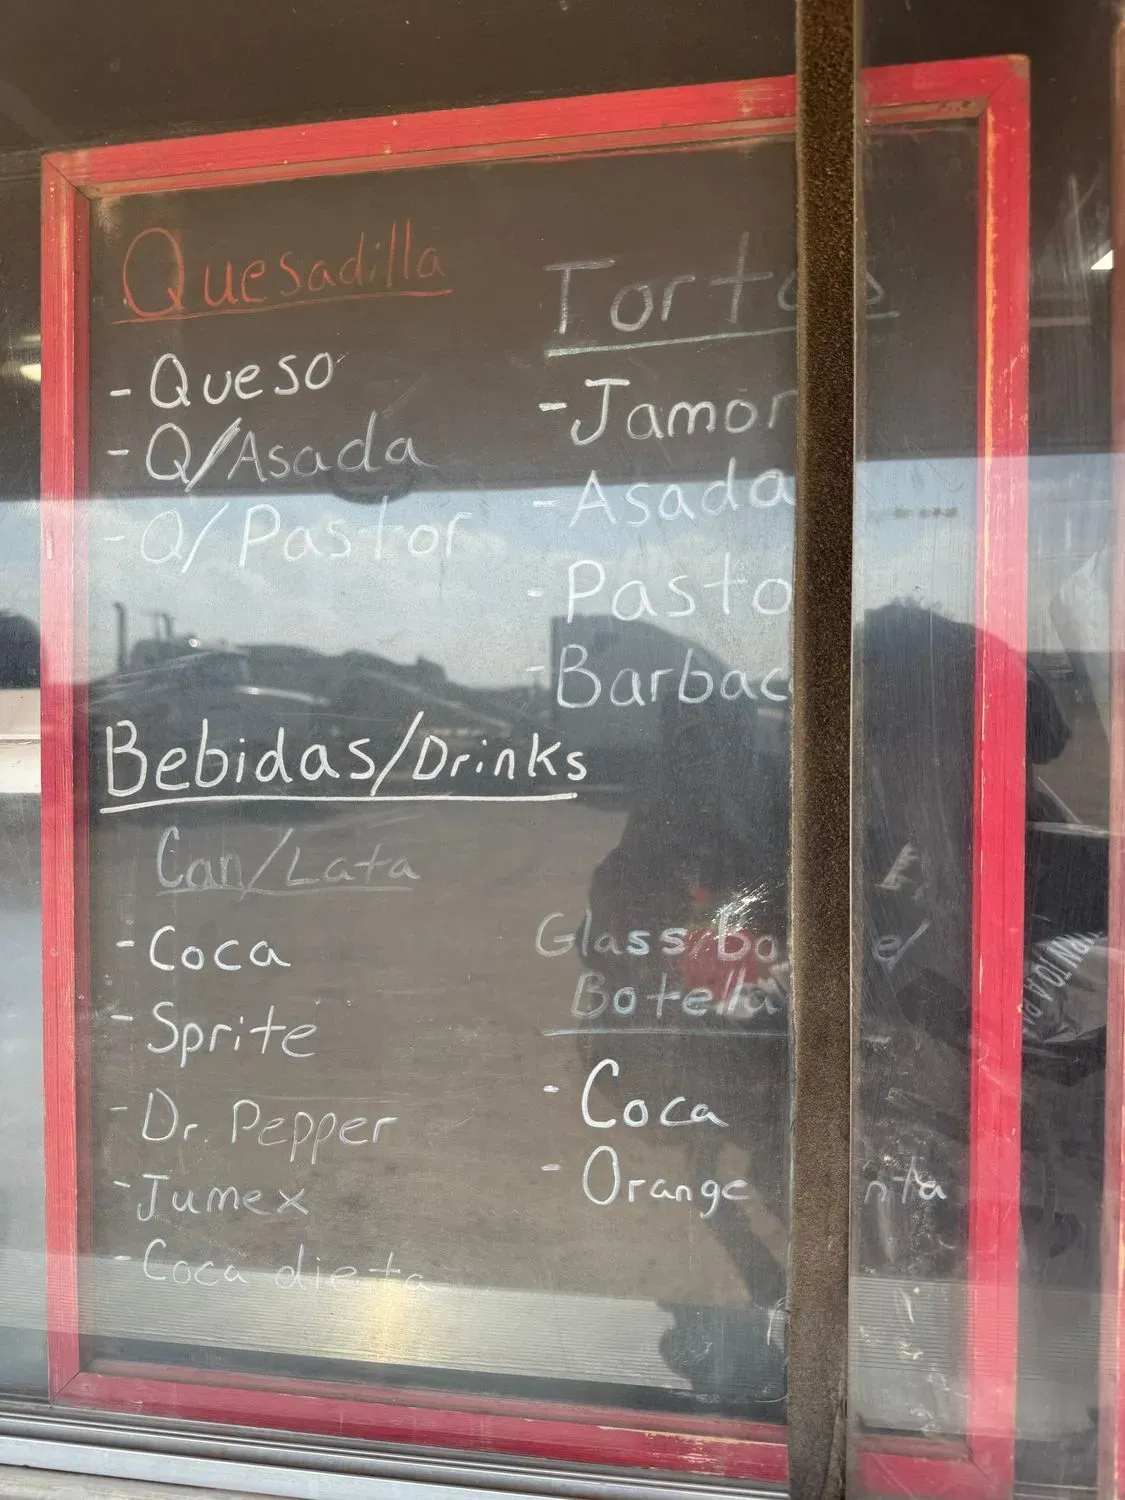 Quesadilla
- Queso
- Q/Asada
- Q/Pastor
Tortas
- Jamon
- Asada
- Pasto
- Barbac
Bebidas/Drinks
Can/Lata
- Coca
- Sprite
- Dr. Pepper
- Jumex
- Coca dieta
Glass bo e/
Botella
- Coca
- Orange nta